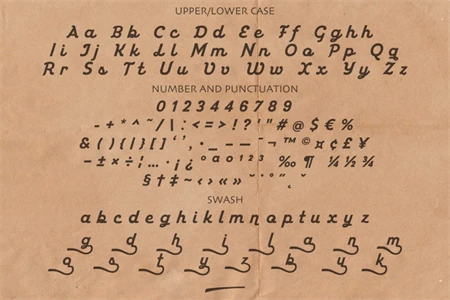 UPPER/LOWER CASE
Aa Bb Cc Dd Ee Ff Gghh
Ii Jj Kk Ll Mm Nn Oo Pp Qq
Rr Ss Tt Uu Vv Ww Xx Yy Zz
NUMBER AND PUNCTUATION
0123446789
- + * ^ ~ / \ | : < = > ! ? ' " # @ $ € %
& ( ) { / } [ ] ' ' , · _ – — ¨ ¬ ™ © ¤ ¢ £ ¥
– ± × ÷ ¦ … · ¡ ¿ º ª º ¹ ² ³ ‰ ¶ ¼ ½ ¾
§ † ‡ ~ ‹ › « » ˘ ˙ ° ˝ ˛ ˇ
SWASH
abcdeghiklmnoptuxyz
g d h i l a n m
o s t y z b u k